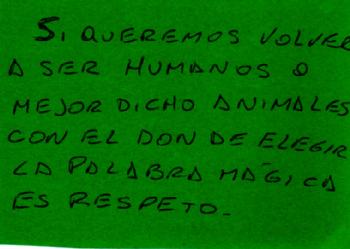 SI QUEREMOS VOLVER
A SER HUMANOS O
MEJOR DICHO ANIMALES
CON EL DON DE ELEGIR
LA PALABRA MÁGICA
ES RESPETO.